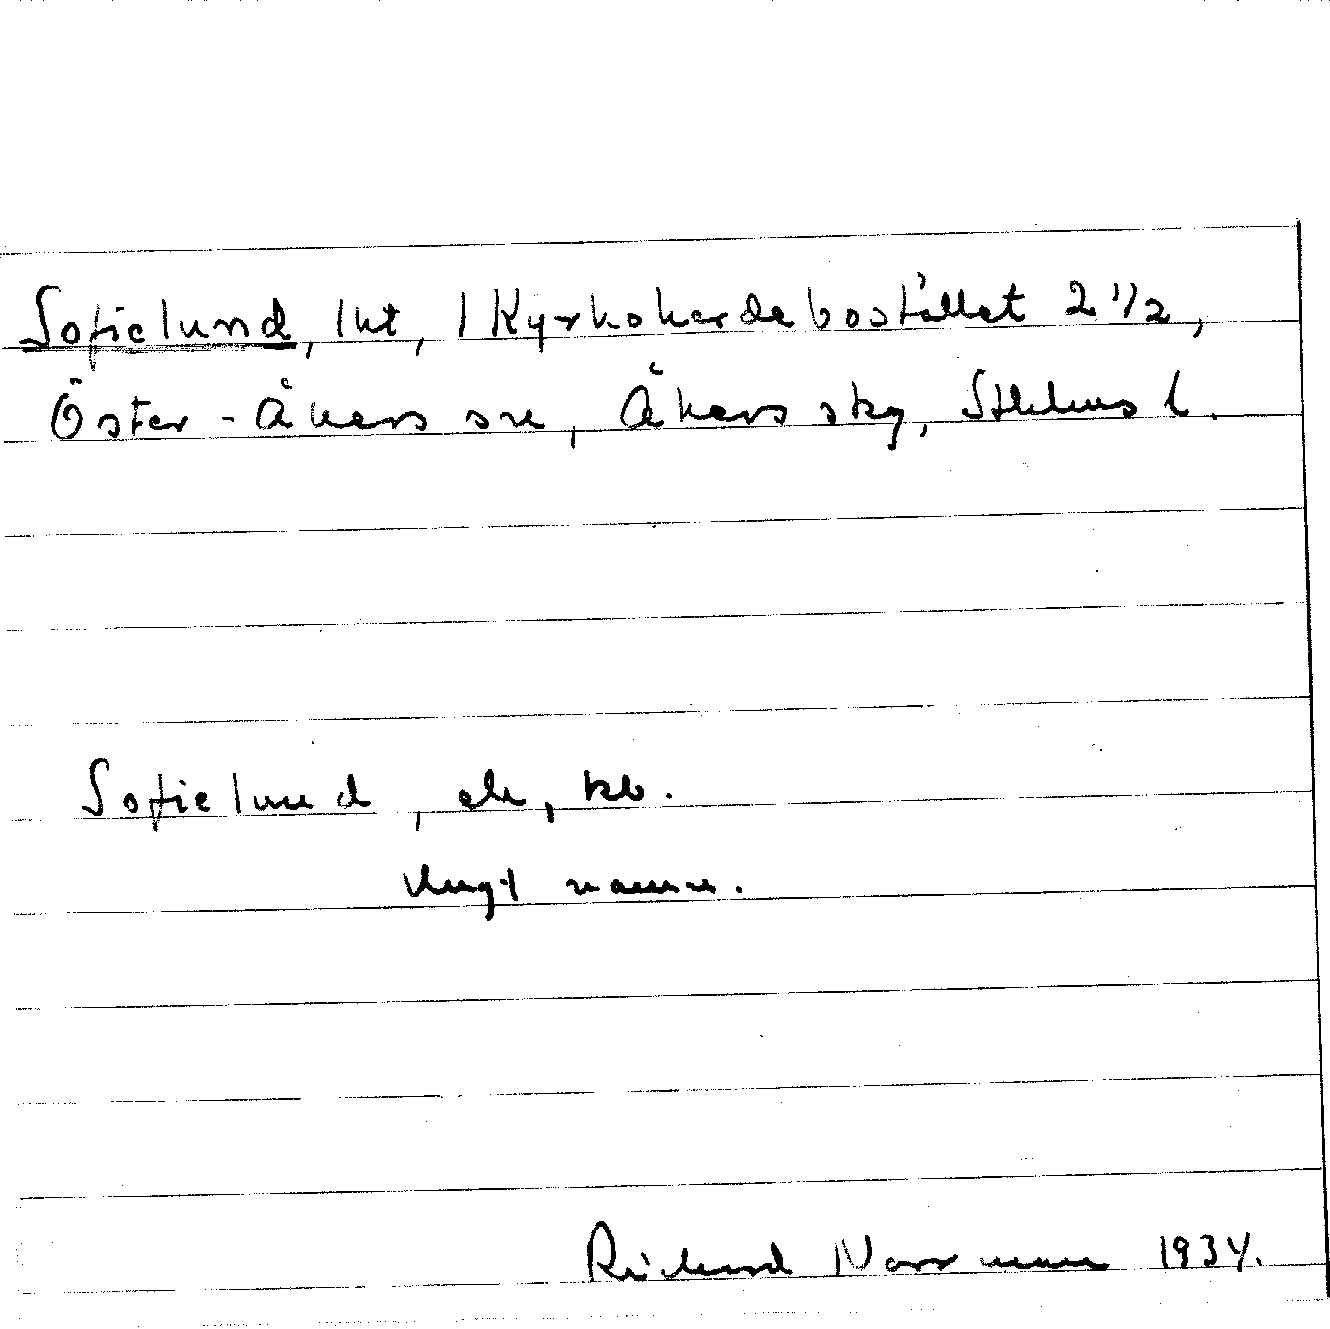 Sofielund, lht, 1 Kyrkoherdebostället 2 1/2,
Öster-Åkers sn, Åkers skg, Sthlms l.
Sofielund, ek, kb.
Ungt namn.
Richard Norrman 1934.